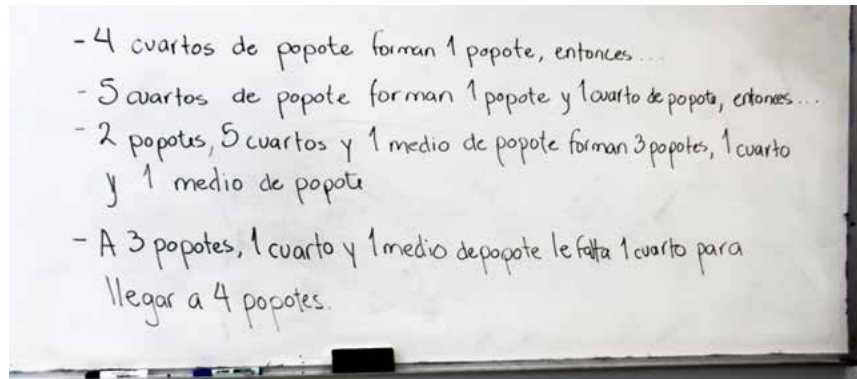 - 4 cuartos de popote forman 1 popote, entonces...
- 5 cuartos de popote forman 1 popote y 1 cuarto de popote, entonces...
- 2 popotes, 5 cuartos y 1 medio de popote forman 3 popotes, 1 cuarto
y 1 medio de popote
- A 3 popotes, 1 cuarto y 1 medio de popote le falta 1 cuarto para
llegar a 4 popotes.